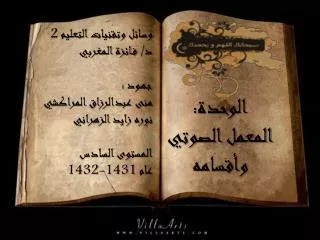 سبحانك اللهم و بحمدك
الوحدة:
المعمل الصوتي
وأقسامه
وسائل وتقنيات التعليم 2
د/ فائزة المغربي
جهود :
منى عبدالرزاق المراكشي
نوره زايد الزهراني
المستوى السادس
عام 1431-1432
VillaArts
WWW.VILLAARTS.COM